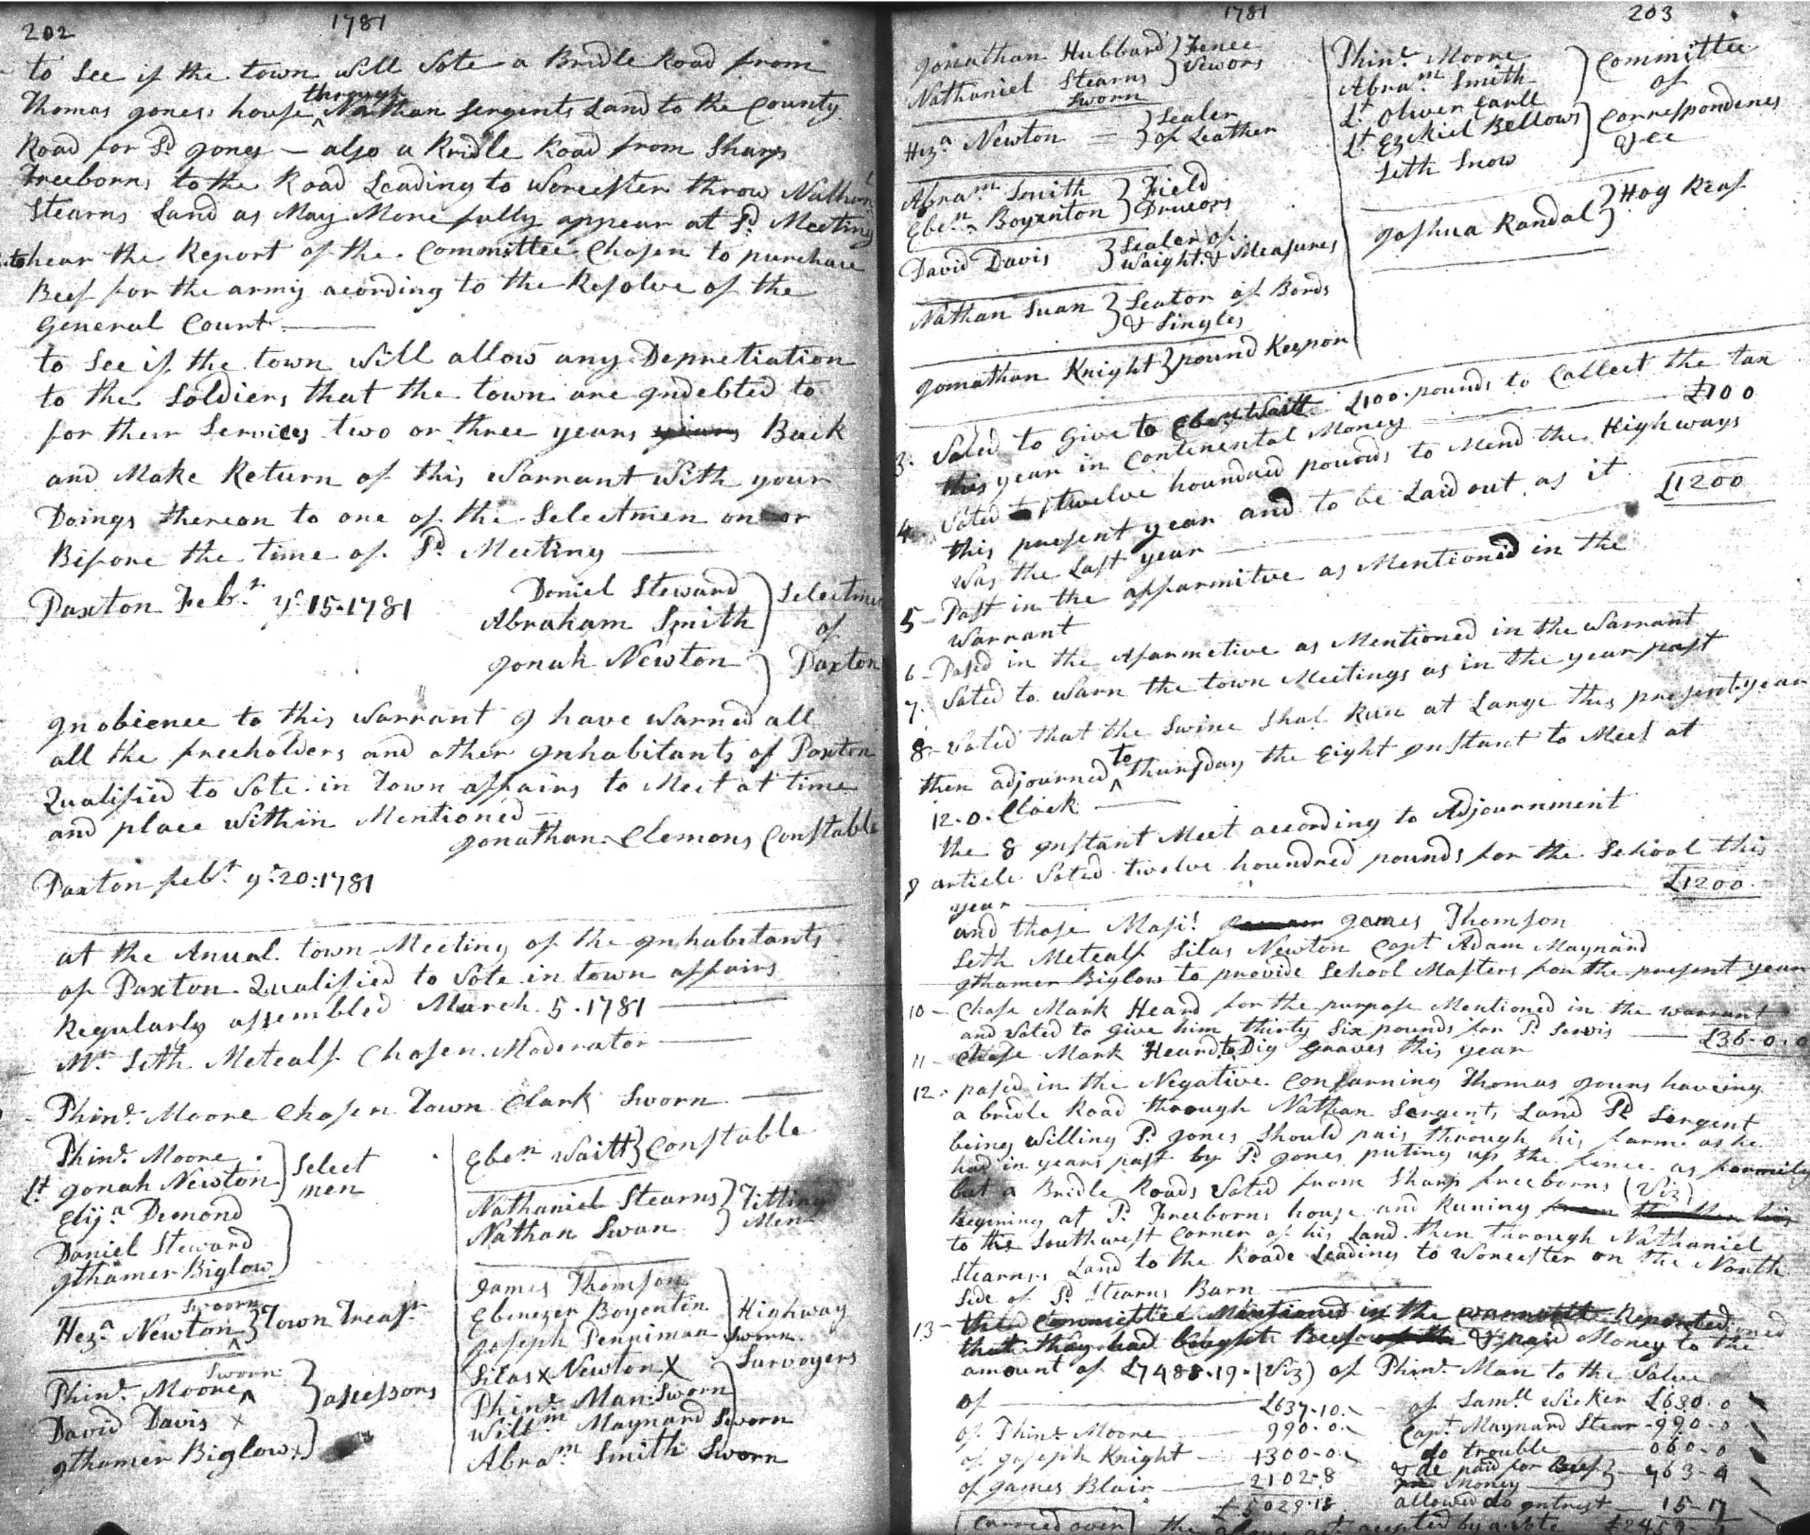 202 1781
to See if the town will Vote a Bridle Road from
through
Thomas joness house ^ Nathan Sergents Land to the County
Road for Sd jones — also a Bridle Road from Sharps
Freeborns to the Road Leading to Worcester throw Nathan
Stearns Land as May More fully appear at Sd Meeting
to hear the Report of the Committee Chosen to purchase
Beef for the army acording to the Resolve of the
General Court
to See if the town will allow any Depretiation
to the Soldiers that the town are indebted to
for their Services two or three years years Back
and Make Return of this Warrant With your
Doings thereon to one of the Selectmen on or
Before the time of Sd Meeting
Paxton Febr ye 15-1781
Daniel Steward
Abraham Smith
jonah Newton
Selectmen
of
Paxton
In obience to this Warrant I have Warned all
all the freeholders and other Inhabitants of Paxton
Qualified to Vote in Town affairs to Meet at time
and place Within Mentioned
jonathan Clemons Constable
Paxton febr ye 20:1781
at the Anual town Meeting of the Inhabitants
of Paxton Qualified to Vote in town affairs
Regularly assembled March 5-1781
Mr Seth Metcalf Chosen Moderator
Phins Moore Chosen Town Clark Sworn
Phins Moore
Lt jonah Newton
Elija Demond
Daniel Steward
Ithamer Biglow
Select
men
Sworn
Heza Newton } Town Treasr
Sworn
Phins Moore
David Davis x
Ithamer Biglow x
} asessors
Eben Waitt } Constable
Nathaniel Stearns
Nathan Swan
} Titting
Men
James Thomson
Ebenezer Boyenten
Joseph Penniman Sworn
Silas x Newton x
Phins Man Sworn
Willm Maynard Sworn
Abram Smith Sworn
Highway
Survoyers
1781 203
jonathan Hubbard
Nathaniel Stearns
Sworn
} Fence
Vewors
Heza Newton — } Sealer
of Leather
Abram Smith
Eben Boyanton
} Field
Druvors
David Davis } Sealer of
Waight & Measures
Nathan Suan } Seator of Bords
& Singles
jonathan Knight } pound Keepor
Phins Moore
Abram Smith
Lt Oliver Earll
Lt Ezekiel Bellows
Seth Snow
Committee
of
Correspondenes
&cc
Joshua Randal } Hog Reaf
3- Voted to Give to Eben Waitt £100 pounds to Collect the tax
this year in Continental Money £100
4 Voted twelve houndred pounds to Mend the High ways
this present year and to be Laid out as it £1200
Was the Last year
5- Past in the affarmitve as Mentioned in the
Warrant
6- Pased in the Afarmetive as Mentioned in the Warrant
7- Voted to warn the town Meetings as in the year past
8- Voted that the Swine Shal Run at Large this present year
then adjourned to ^ Thursday the Eight Instant to Meet at
12-o-Clock
the 8 Instant Meet according to Adjournment
9 article Voted twelve houndred pounds for the School this
year £1200
and Chose Masr James Thomson
Seth Metcalf Silas Newton Capt Adam Maynard
Ithamer Biglow to provide School Masters for the present year
10- Chose Mark Heard for the purpose Mentioned in the warrant
and Voted to give him thirty Six pounds for Sd servis £36-0-0
11- Chose Mark Heard to Dig Graves this year
12- pased in the Negative Consarning Thomas jouns haveing
a bridle Road through Nathan Sergents Land Sd Sergent
being Willing Sd jones Should pass through his farme as he
had in years past by Sd jones puting up the fence as formily
but a Bridle Roads Voted from Sharp freeborns (Viz)
Begining at Sd Freeborns house and Runing
to the Southwest Corner of his Land then through Nathaniel
Stearnss Land to the Roade Leading to Worcester on the North
Side of Sd Stearns Barn
13- the Committee Mentioned in the warrant Reported
that they had bought Beef & paid Money to the
amount of £7488-19-(Viz) of Phins Man to the Value
of £637-10
of Phins Moore 990-0
of Joseph Knight 1300-0
of James Blair 2102-8
£5029-18
of Samll Wicker £680-0
Capt Maynard Stear 990-0
do trouble 060-0
& de paid for Beef
Money 763-4
allowed do intrest 15-17
Carried over